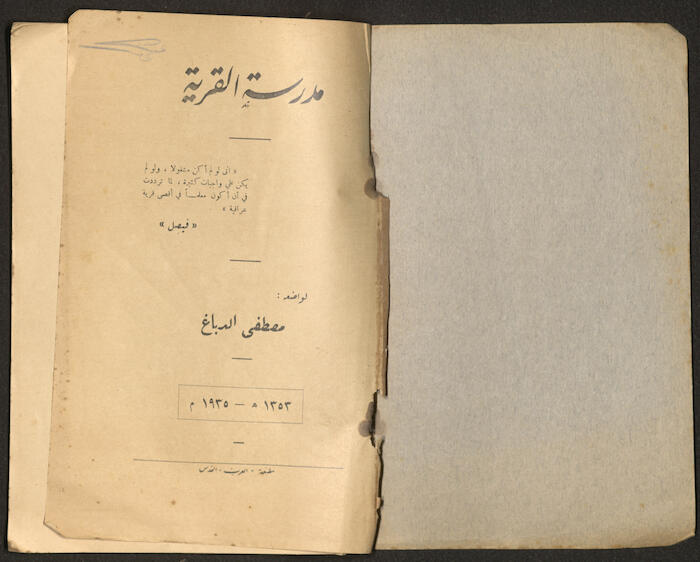 مدرسة القرية
« انى لو لم أكن مشغولا ، ولو لم
يكن علي واجبات كثيرة ، لما ترددت
في أن أكون معلمـاً في أقصى قرية
عراقية »
« فيصل »
لواضعه :
مصطفى الدباغ
١٣٥٣ هـ — ١٩٣٥ م
مطبعة - العرب - القدس